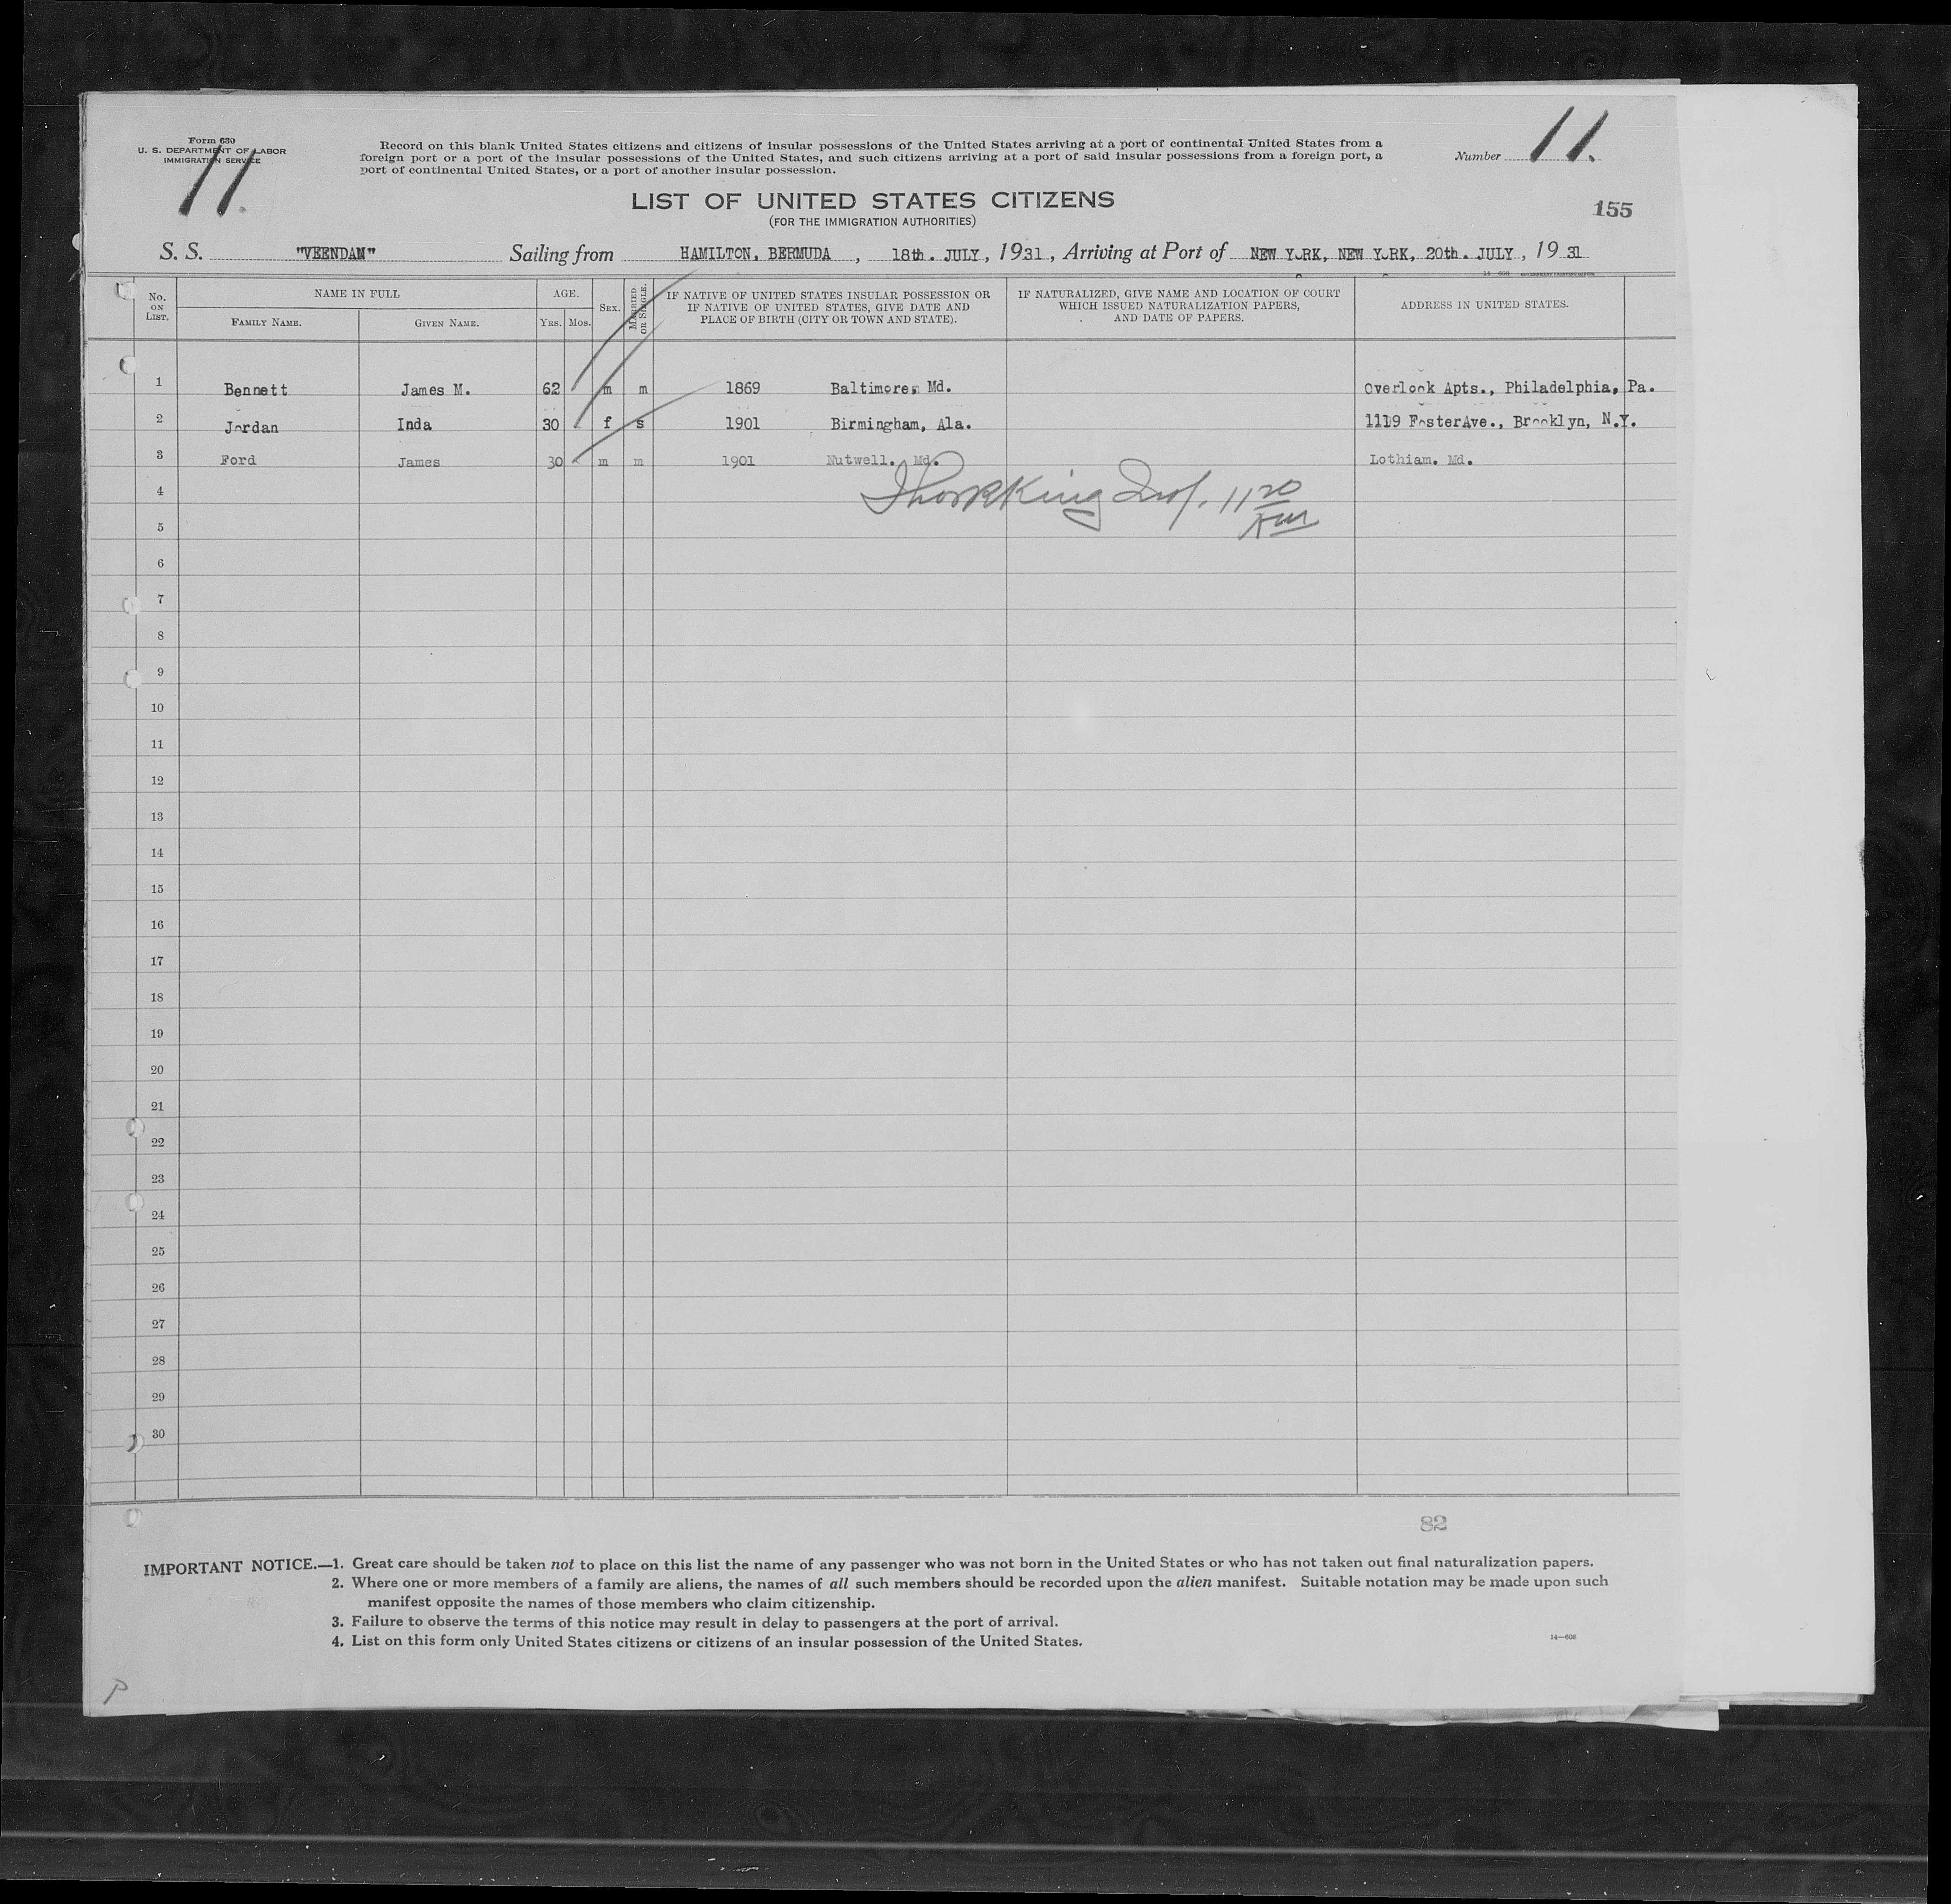 Form 630
U. S. DEPARTMENT OF LABOR
IMMIGRATION SERVICE
11.
Record on this blank United States citizens and citizens of insular possessions of the United States arriving at a port of continental United States from a
foreign port or a port of the insular possessions of the United States, and such citizens arriving at a port of said insular possessions from a foreign port, a
port of continental United States, or a port of another insular possession.
Number 11.
LIST OF UNITED STATES CITIZENS
(FOR THE IMMIGRATION AUTHORITIES)
155
S. S. "VEENDAM" Sailing from HAMILTON, BERMUDA , 18th. JULY, 1931, Arriving at Port of NEW YORK, NEW YORK, 20th. JULY, 1931
No. ON LIST. NAME IN FULL AGE. SEX. MARRIED OR SINGLE. IF NATIVE OF UNITED STATES INSULAR POSSESSION OR IF NATIVE OF UNITED STATES, GIVE DATE AND PLACE OF BIRTH (CITY OR TOWN AND STATE). IF NATURALIZED, GIVE NAME AND LOCATION OF COURT WHICH ISSUED NATURALIZATION PAPERS, AND DATE OF PAPERS. ADDRESS IN UNITED STATES.
FAMILY NAME. GIVEN NAME. YRS. MOS.
1 Bennett James M. 62 m m 1869 Baltimore, Md. Overlook Apts., Philadelphia, Pa.
2 Jordan Inda 30 f s 1901 Birmingham, Ala. 1119 FosterAve., Brooklyn, N.Y.
3 Ford James 30 m m 1901 Nutwell. Md. Lothiam. Md.
4 King 11 20
5
6
7
8
9
10
11
12
13
14
15
16
17
18
19
20
21
22
23
24
25
26
27
28
29
30
82
IMPORTANT NOTICE.—1. Great care should be taken not to place on this list the name of any passenger who was not born in the United States or who has not taken out final naturalization papers.
2. Where one or more members of a family are aliens, the names of all such members should be recorded upon the alien manifest. Suitable notation may be made upon such
manifest opposite the names of those members who claim citizenship.
3. Failure to observe the terms of this notice may result in delay to passengers at the port of arrival.
4. List on this form only United States citizens or citizens of an insular possession of the United States.
14—608
P